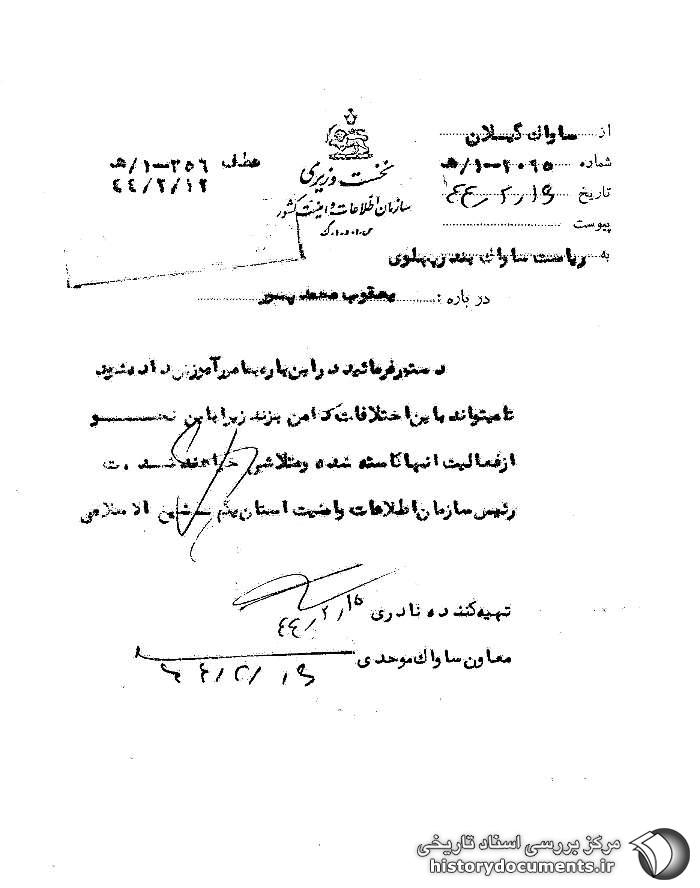 از ساواك گیلان
شماره ۲۰۹۵-۱/ه
تاریخ ۴۴/۲/۱۶
پیوست
به ریاست ساواك بندرپهلوی
نخست وزیری
سازمان اطلاعات و امنیت کشور
س.ا.و.ا.ك
عطف ۳۵۶-۱/ه
۴۴/۲/۱۲
در باره : یعقوب محمد پسور
دستور فرمائید در این باره بمامور آموزش داده شود
تا میتواند باین اختلافات دامن بزند زیرا باین نحو
از فعالیت انها کاسته شده و متلاشی خواهند شد . ت
رئیس سازمان اطلاعات و امنیت استان یکم . شیخ الاسلامی
تهیه کننده نادری ۴۴/۲/۱۵
معاون ساواك موحدی ۴۴/۲/۱۶
مرکز بررسی اسناد تاریخی
historydocuments.ir